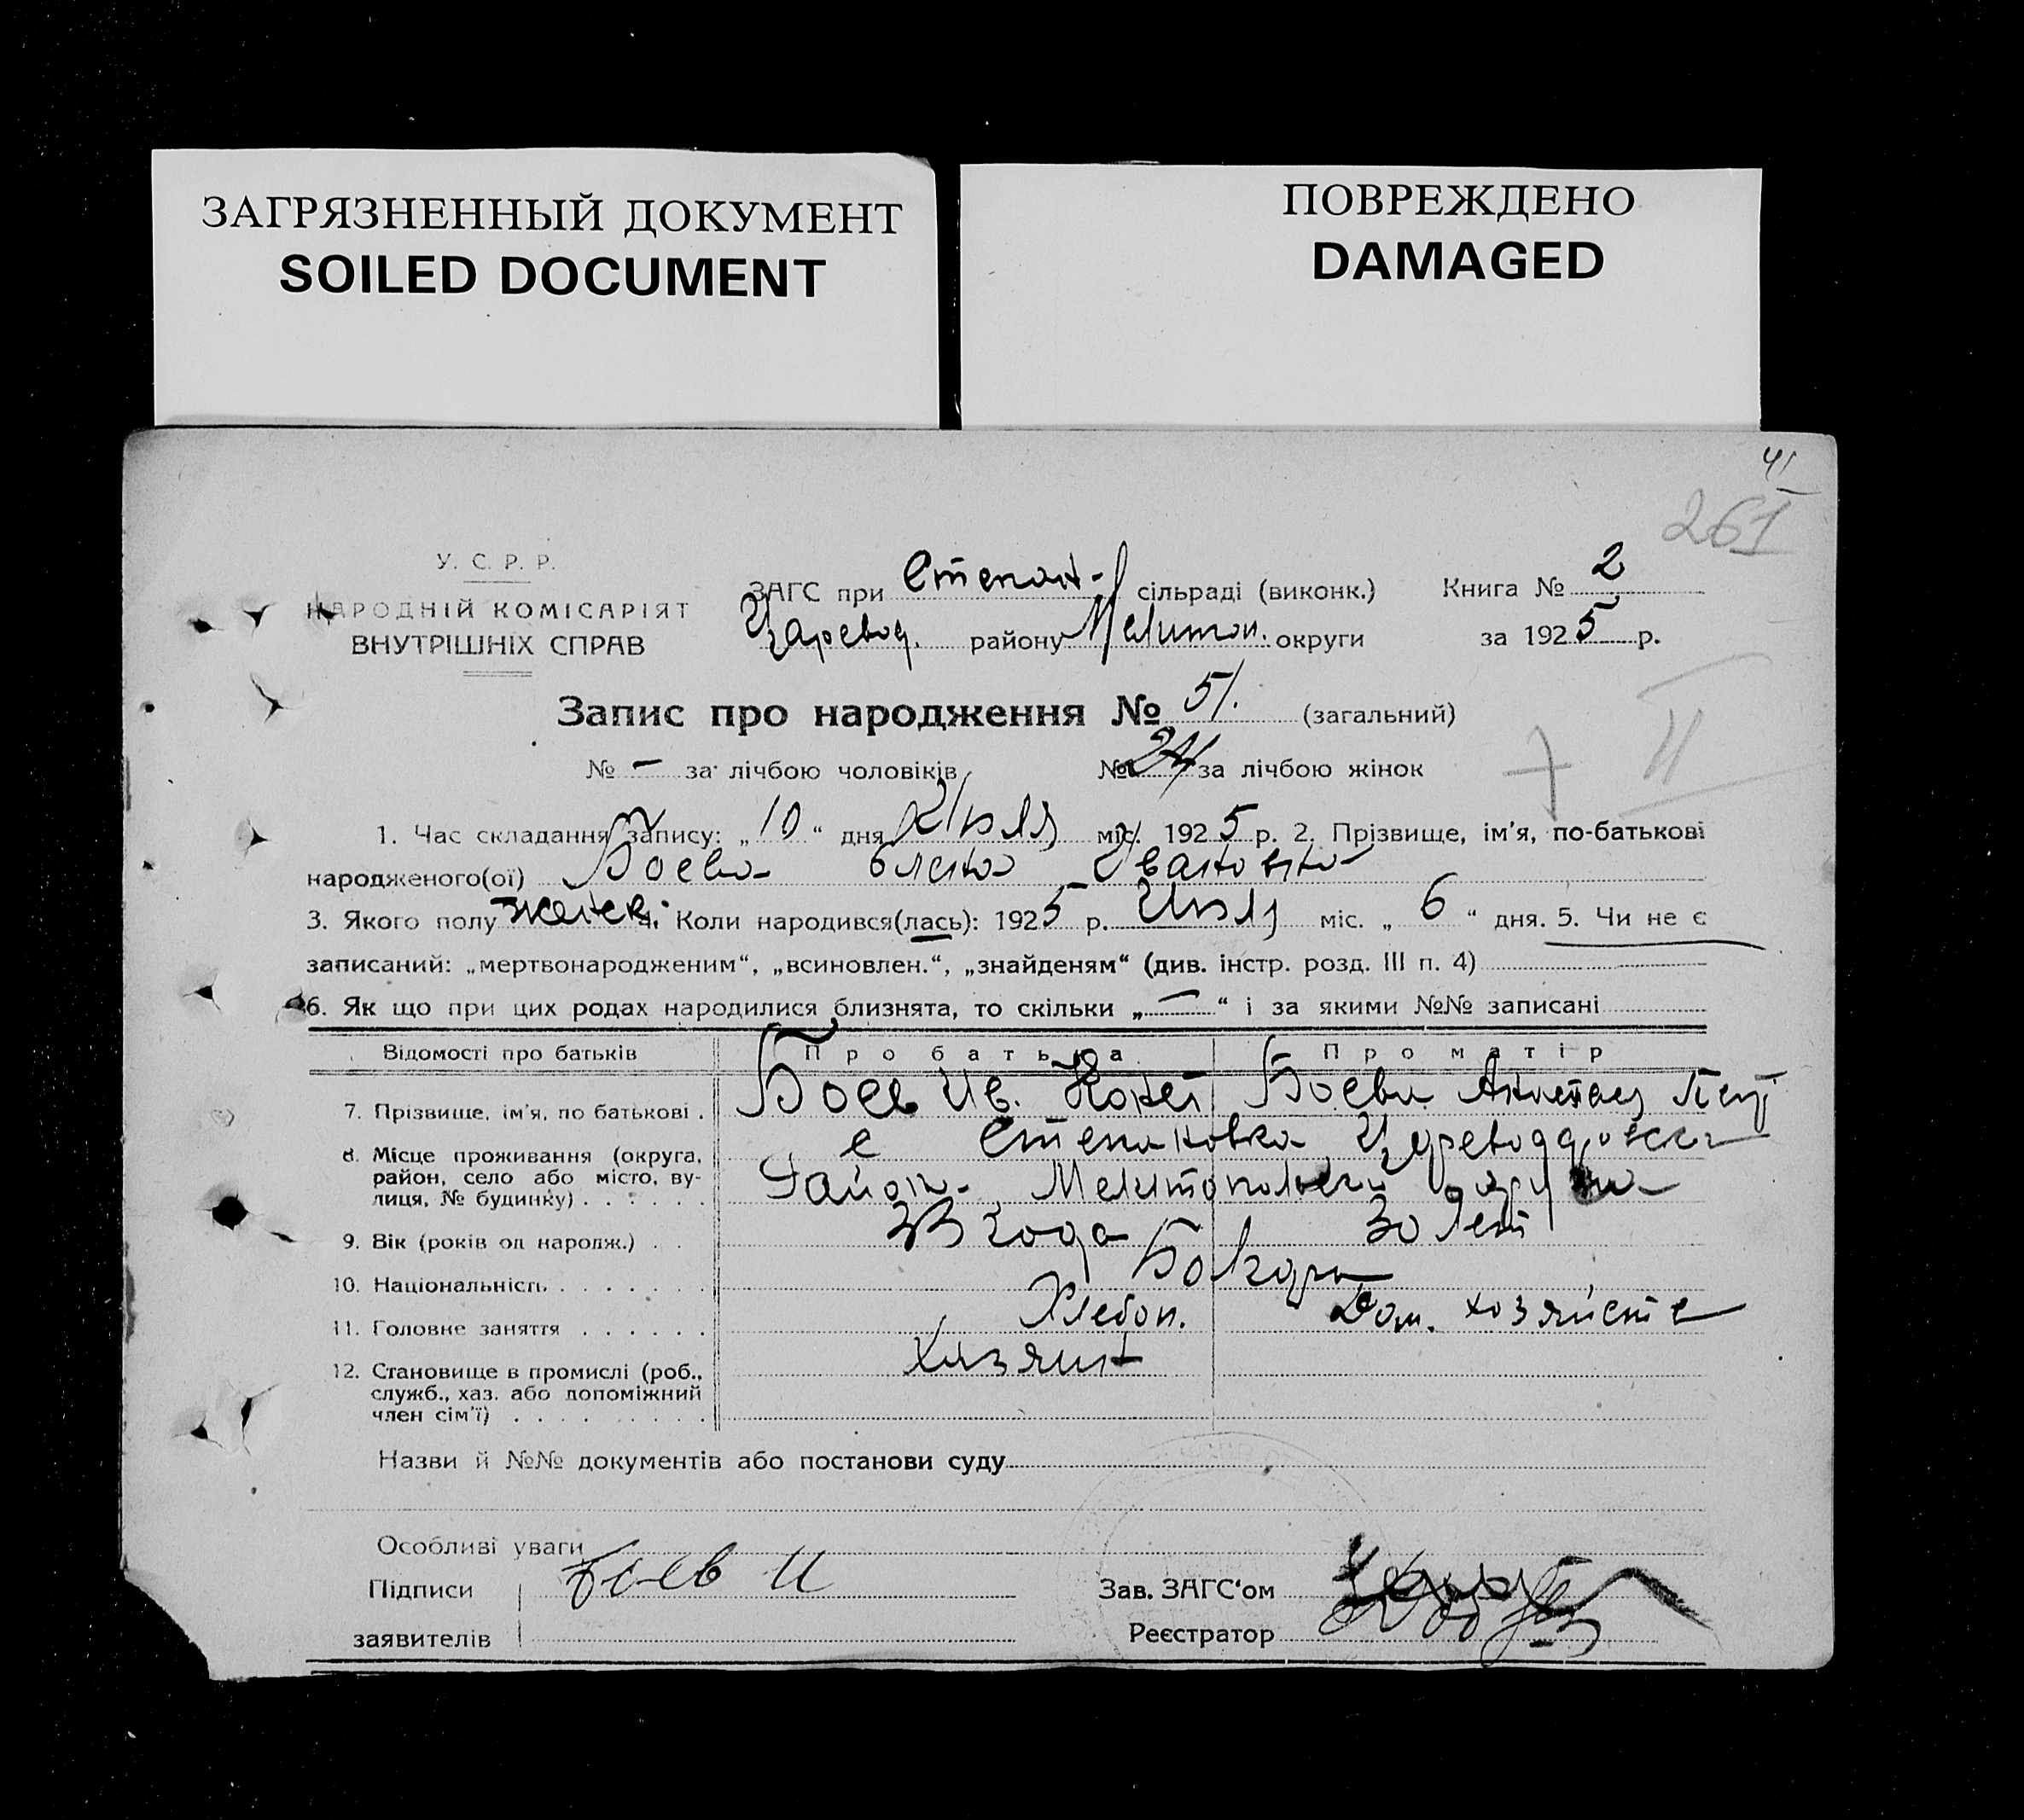 ЗАГРЯЗНЕННЫЙ ДОКУМЕНТ
SOILED DOCUMENT
ПОВРЕЖДЕНО
DAMAGED
41
261
У. С. Р. Р.
НАРОДНІЙ КОМІСАРІЯТ
ВНУТРІШНІХ СПРАВ
ЗАГС при Степан- сільраді (виконк.) Книга № 2
Царевод. району Мелитоп. округи за 1925 р.
Запис про народження № 51. (загальний)
№ — за лічбою чоловіків № 24 за лічбою жінок
II
1. Час складання запису: „10“ дня Июля міс. 1925 р. 2. Прізвище, ім'я, по-батькові
народженого(ої) Боева Елена Ивановна
3. Якого полу женск. 4. Коли народився(лась): 1925 р. Июля міс. „6“ дня. 5. Чи не є
записаний: „мертвонародженим“, „всиновлен.“, „знайденям“ (див. інстр. розд. III п. 4)
6. Як що при цих родах народилися близнята, то скільки „—“ і за якими №№ записані
Відомості про батьків Про батька Про матір
7. Прізвище, ім'я, по батькові . Боев Ив. Боева Анастас Петр
8. Місце проживання (округа, район, село або місто, вулиця, № будинку) с Степановка Царевод
район. Мелитопольск округа
9. Вік (років од народж.) . . 33 года 30 лет
10. Національність Болгары
11. Головне заняття Хлебоп. Дом. хозяйств
12. Становище в промислі (роб., служб., хаз. або допоміжний член сім'ї) Хозяин
Назви й №№ документів або постанови суду
Особливі уваги
Підписи Боев И Зав. ЗАГС'ом
заявителів Реєстратор